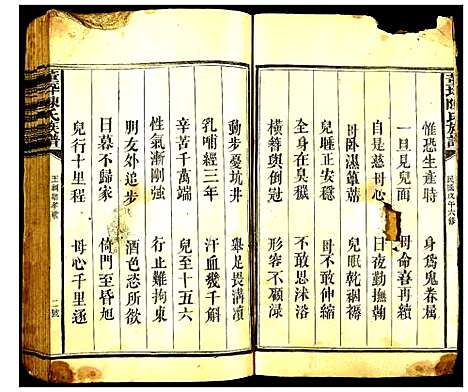 董坪陳氏族譜
民國戊午六修
惟恐生產時 身為鬼眷屬
一旦見兒面 母命喜再續
自是慈母心 日夜勤撫鞠
母臥濕簟蓆 兒眠乾裀褥
兒睡正安穩 不敢思伸縮
全身在臭穢 不敢思沐浴
橫簪與倒冠 形容不顧淥
動步憂坑井 舉足畏溝瀆
乳哺經三年 汗血幾千斛
辛苦千萬端 兒至十五六
性氣漸剛強 行止難拘束
朋友外追歩 酒色恣所欲
日暮不歸家 倚門至昏旭
兒行十里程 母心千里逐
陳氏族譜
二號